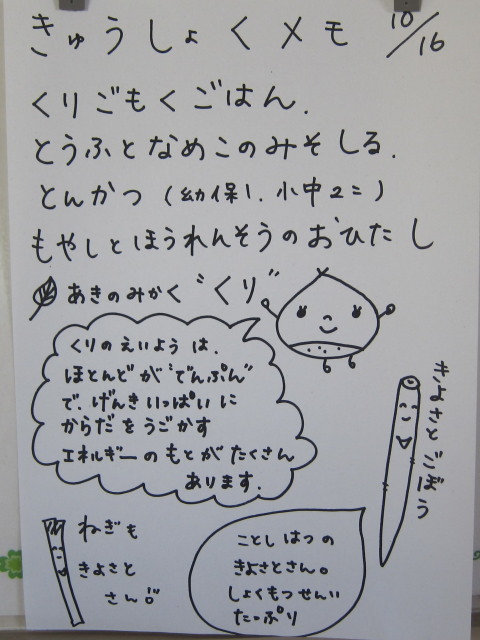 きゅうしょくメモ 10/16
くりごもくごはん.
とうふとなめこのみそしる.
とんかつ(幼保1.小中2こ)
もやしとほうれんそうのおひたし
あきのみかく〝くり〟
くりのえいようは、
ほとんどが〝でんぷん〟
で、げんきいっぱいに
からだをうごかす
エネルギーのもとがたくさん
あります.
きよさとごぼう
ねぎも
きよさと
さん!!
ことしはつの
きよさとさん。
しょくもつせんい
たっぷり